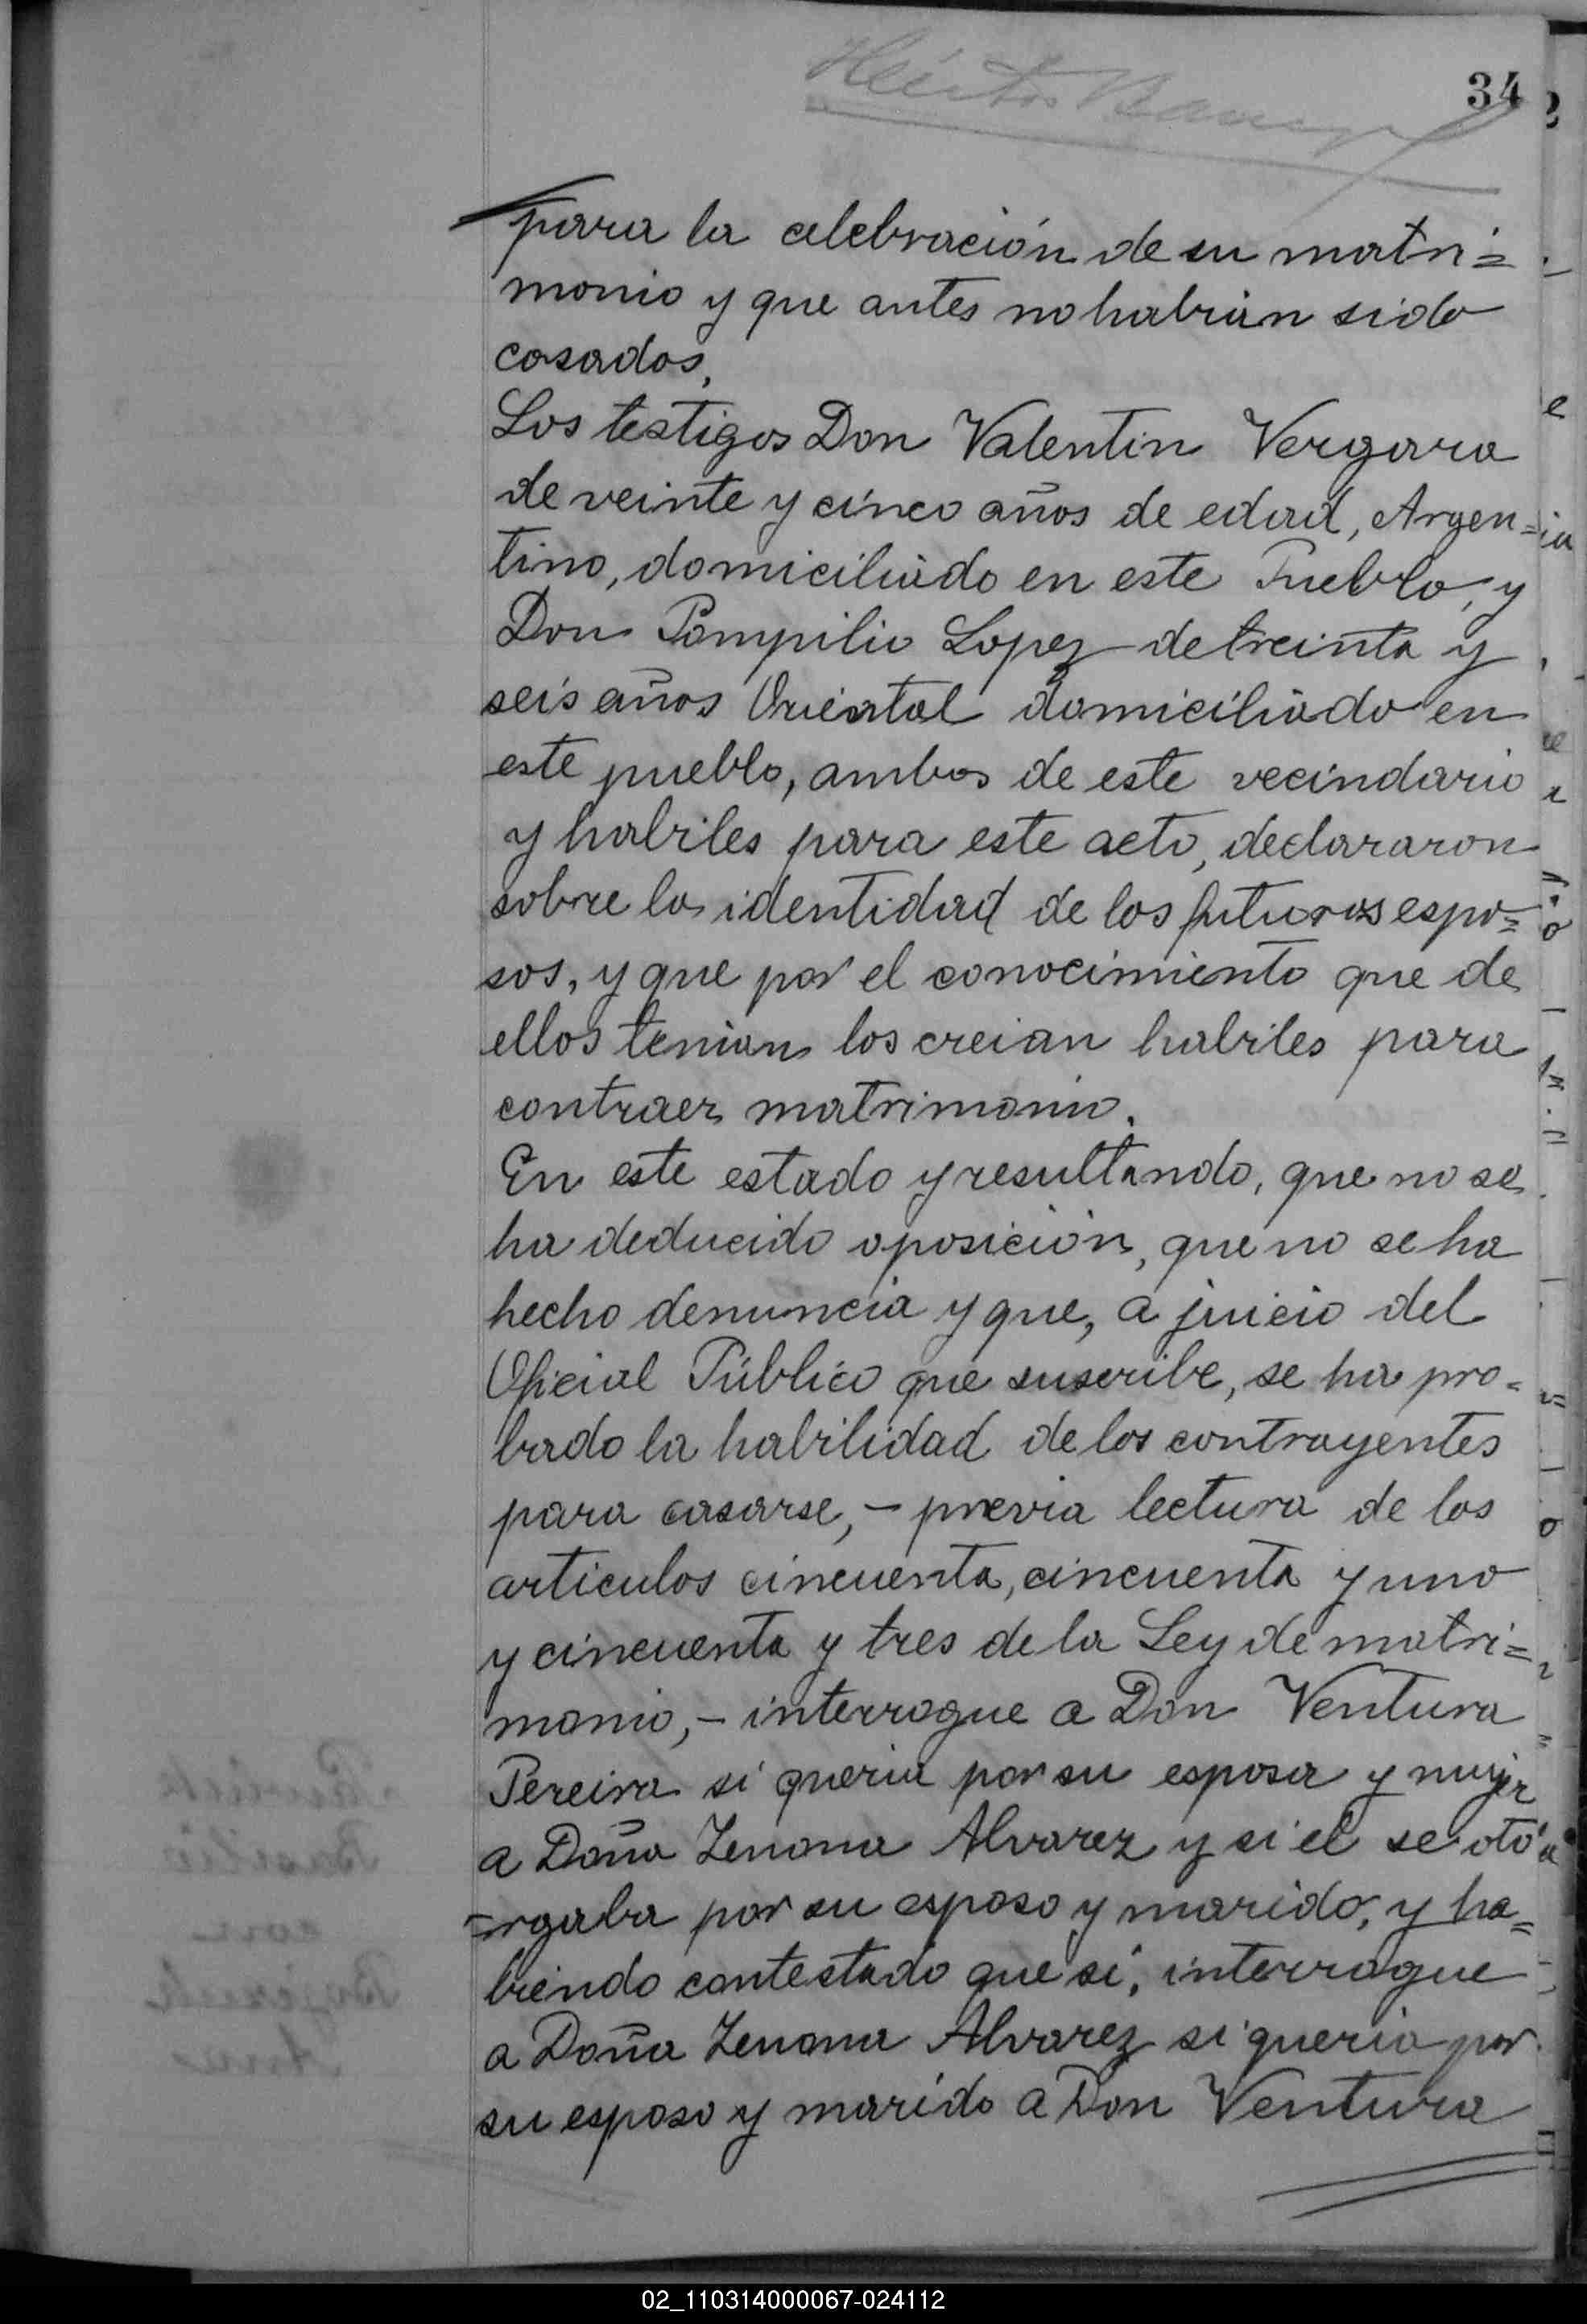 34
para la celebración de su matri=
monio y que antes no habian sido
casados,
Los testigos Don Valentin Vergara
de veinte y cinco años de edad, Argen=
tino, domiciliado en este Pueblo, y
Don Pompilio Lopez de treinta y
seis años Oriental domiciliado en
este pueblo, ambos de este vecindario
y habiles para este acto, declararon
sobre la identidad de los futuros espo=
sos, y que por el conocimiento que de
ellos tenian los creian habiles para
contraer matrimonio.
En este estado y resultando, que no se
ha deducido oposición, que no se ha
hecho denuncia y que, a juicio del
Oficial Público que suscribe, se ha pro=
bado la habilidad de los contrayentes
para casarse, – previa lectura de los
articulos cincuenta, cincuenta y uno
y cincuenta y tres de la Ley de matri=
monio, – interrogue a Don Ventura
Pereira si queria por su esposa y mujer
a Doña Zenona Alvarez y si el se oto
=rgaba por su esposo y marido, y ha=
biendo contestado que si, interrogue
a Doña Zenona Alvarez si queria por
su esposo y marido a Don Ventura
02_110314000067-024112